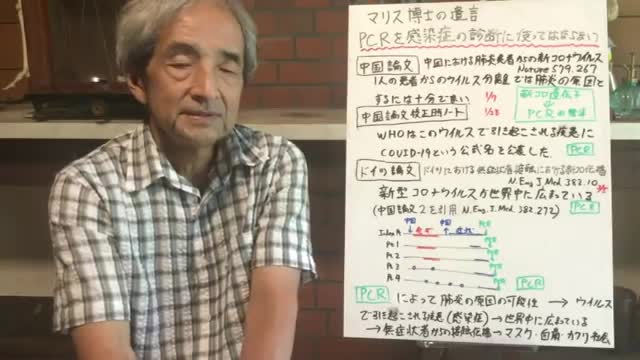 マリス博士の遺言
PCRを感染症の診断に使ってはならない
中国論文 中国における肺炎患者からの新コロナウイルス
Nature 579.267
1人の患者からのウイルス分離では肺炎の原因と
するには十分で無い 1/7
中国論文校正時ノート 1/28
新コロ遺伝子
↓
PCRの標準
WHOはこのウイルスで引き起こされる疾患に
COVID-19という公式名を公表した. PCR
ドイツの論文 ドイツにおける無症状者接触における
N. Eng. J. Med. 382.10
新型コロナウイルスが世界中に広まっている
(中国論文2を引用 N. Eng. J. Med. 382.272) PCR
Index Pt
Pt 1
Pt 2
Pt 3
Pt 4
PCR
PCR によって肺炎の原因の可能性 → ウイルス
で引き起こされる疾患(感染症)→世界中に広まっている
→無症状者からの接触伝播→マスク・自粛・